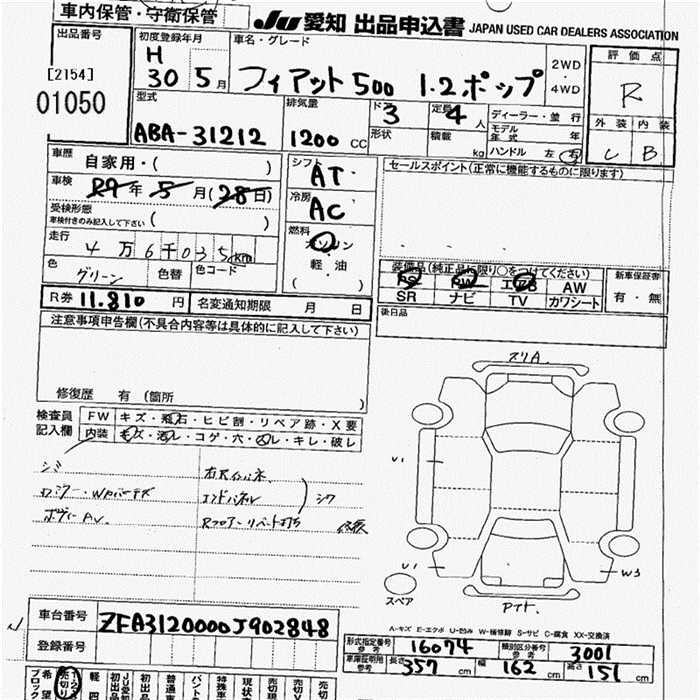 車内保管・守衛保管
JU 愛知 出品申込書 JAPAN USED CAR DEALERS ASSOCIATION
出品番号
[2154]
01050
初度登録年月
H
30 5月
車名・グレード
フィアット500 1.2ポップ
2WD
・
4WD
評価点
R
外装 内装
C B
型式
ABA-31212
排気量
1200 CC
ドア
3
形状
定員
4人
積載
kg
ディーラー・並行
モデル年式 年
ハンドル 左・右
車歴
自家用・( )
車検
R9年5月(28日)
受検形態
車検付きのみ記入して下さい ( )
走行
4万6千035km
色
グリーン
色替
色コード
シフト
AT
冷房
AC
燃料
ガソリン
軽・油
( )
セールスポイント(正常に機能するものに限ります)
装備品(純正品に限り〇をつけてください)
PS PW エアB AW
SR ナビ TV カワシート
新車保証書
有・無
後日品
R券 11.810 円
名変通知期限 月 日
注意事項申告欄(不具合内容等は具体的に記入して下さい)
修復歴 有 (箇所 )
検査員
記入欄
FW キズ・飛石・ヒビ割・リペア跡・X要
内装 キズ・汚レ・コゲ・穴・凶レ・キレ・破レ
ボディーAV.
エンドパネル
シワ
スリA.
U1
U1
W3
スペア
車台番号
ZFA3120000J902848
登録番号
A-キズ E-エクボ U-凹み W-補修跡 S-サビ C-腐食 XX-交換済
形式指定番号
参考
16074
類別区分番号
参考
3001
車庫証明用
参考
長さ 357 cm
幅 162 cm
高さ 151 cm